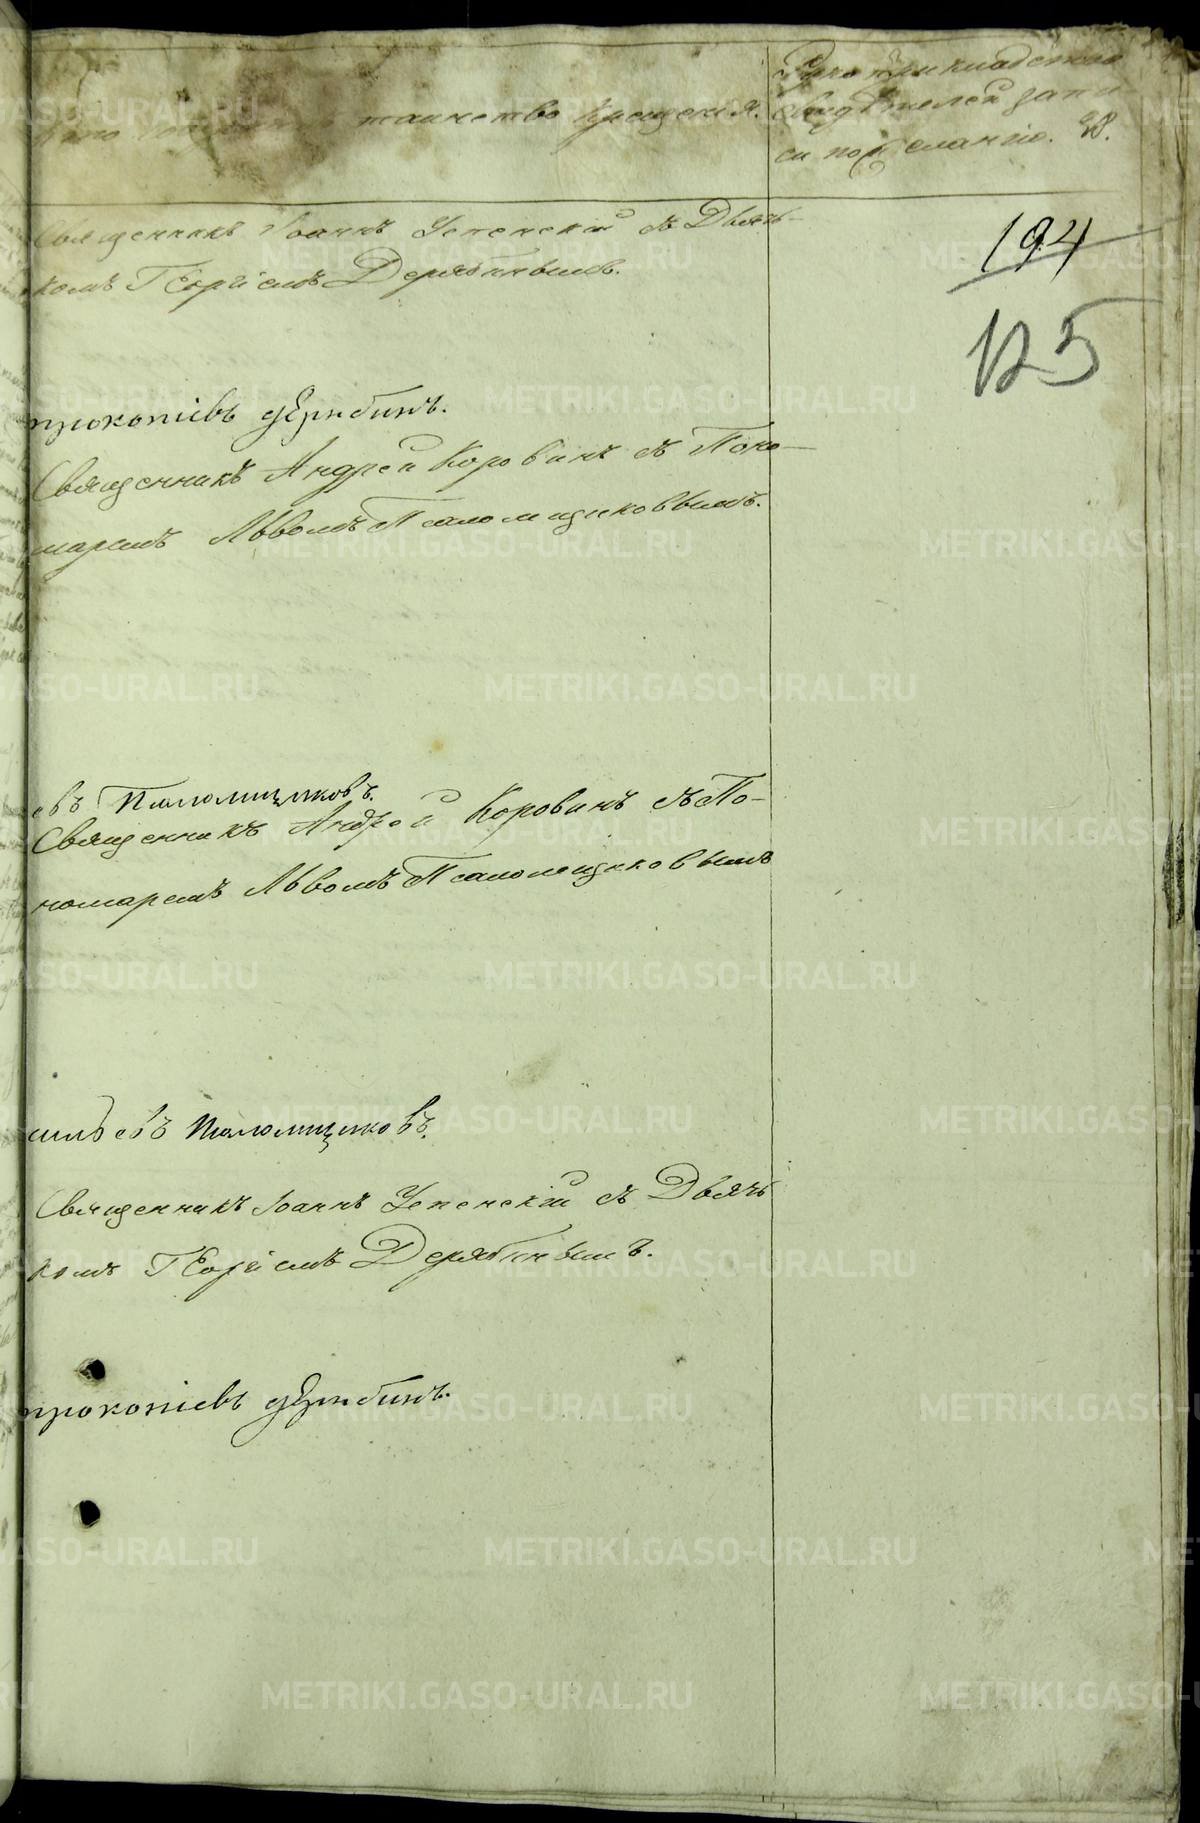 Кто совершалъ таинство крещенія.
Рукоприкладство
свидѣтелей запи-
си по желанію.
194
125
Священникъ Іоаннъ Успенскій съ Дьяч-
комъ Георгіемъ Дерябинымъ.
прокопіевъ дерябинъ.
Священникъ Андрей Коровинъ съ Поно-
маремъ Львомъ Псаломщиковымъ.
евъ Псаломщиковъ.
Священникъ Андрей Коровинъ съ По-
номаремъ Львомъ Псаломщиковымъ
сильевъ Псаломщиковъ.
Священникъ Іоаннъ Успенскій съ Дьяч
комъ Георгіемъ Дерябинымъ.
прокопіевъ дерябинъ.
METRIKI.GASO-URAL.RU